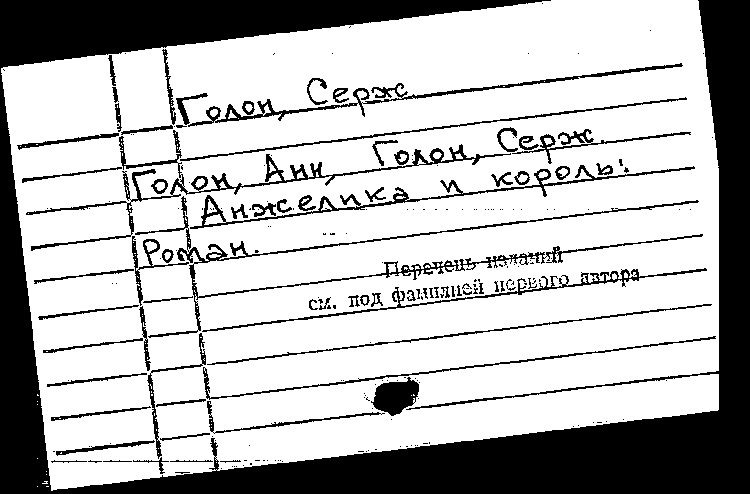 Голон, Серж
Голон, Анн, Голон, Серж.
Анжелика и король:
Роман.
Перечень изданий
см. под фамилией первого автора